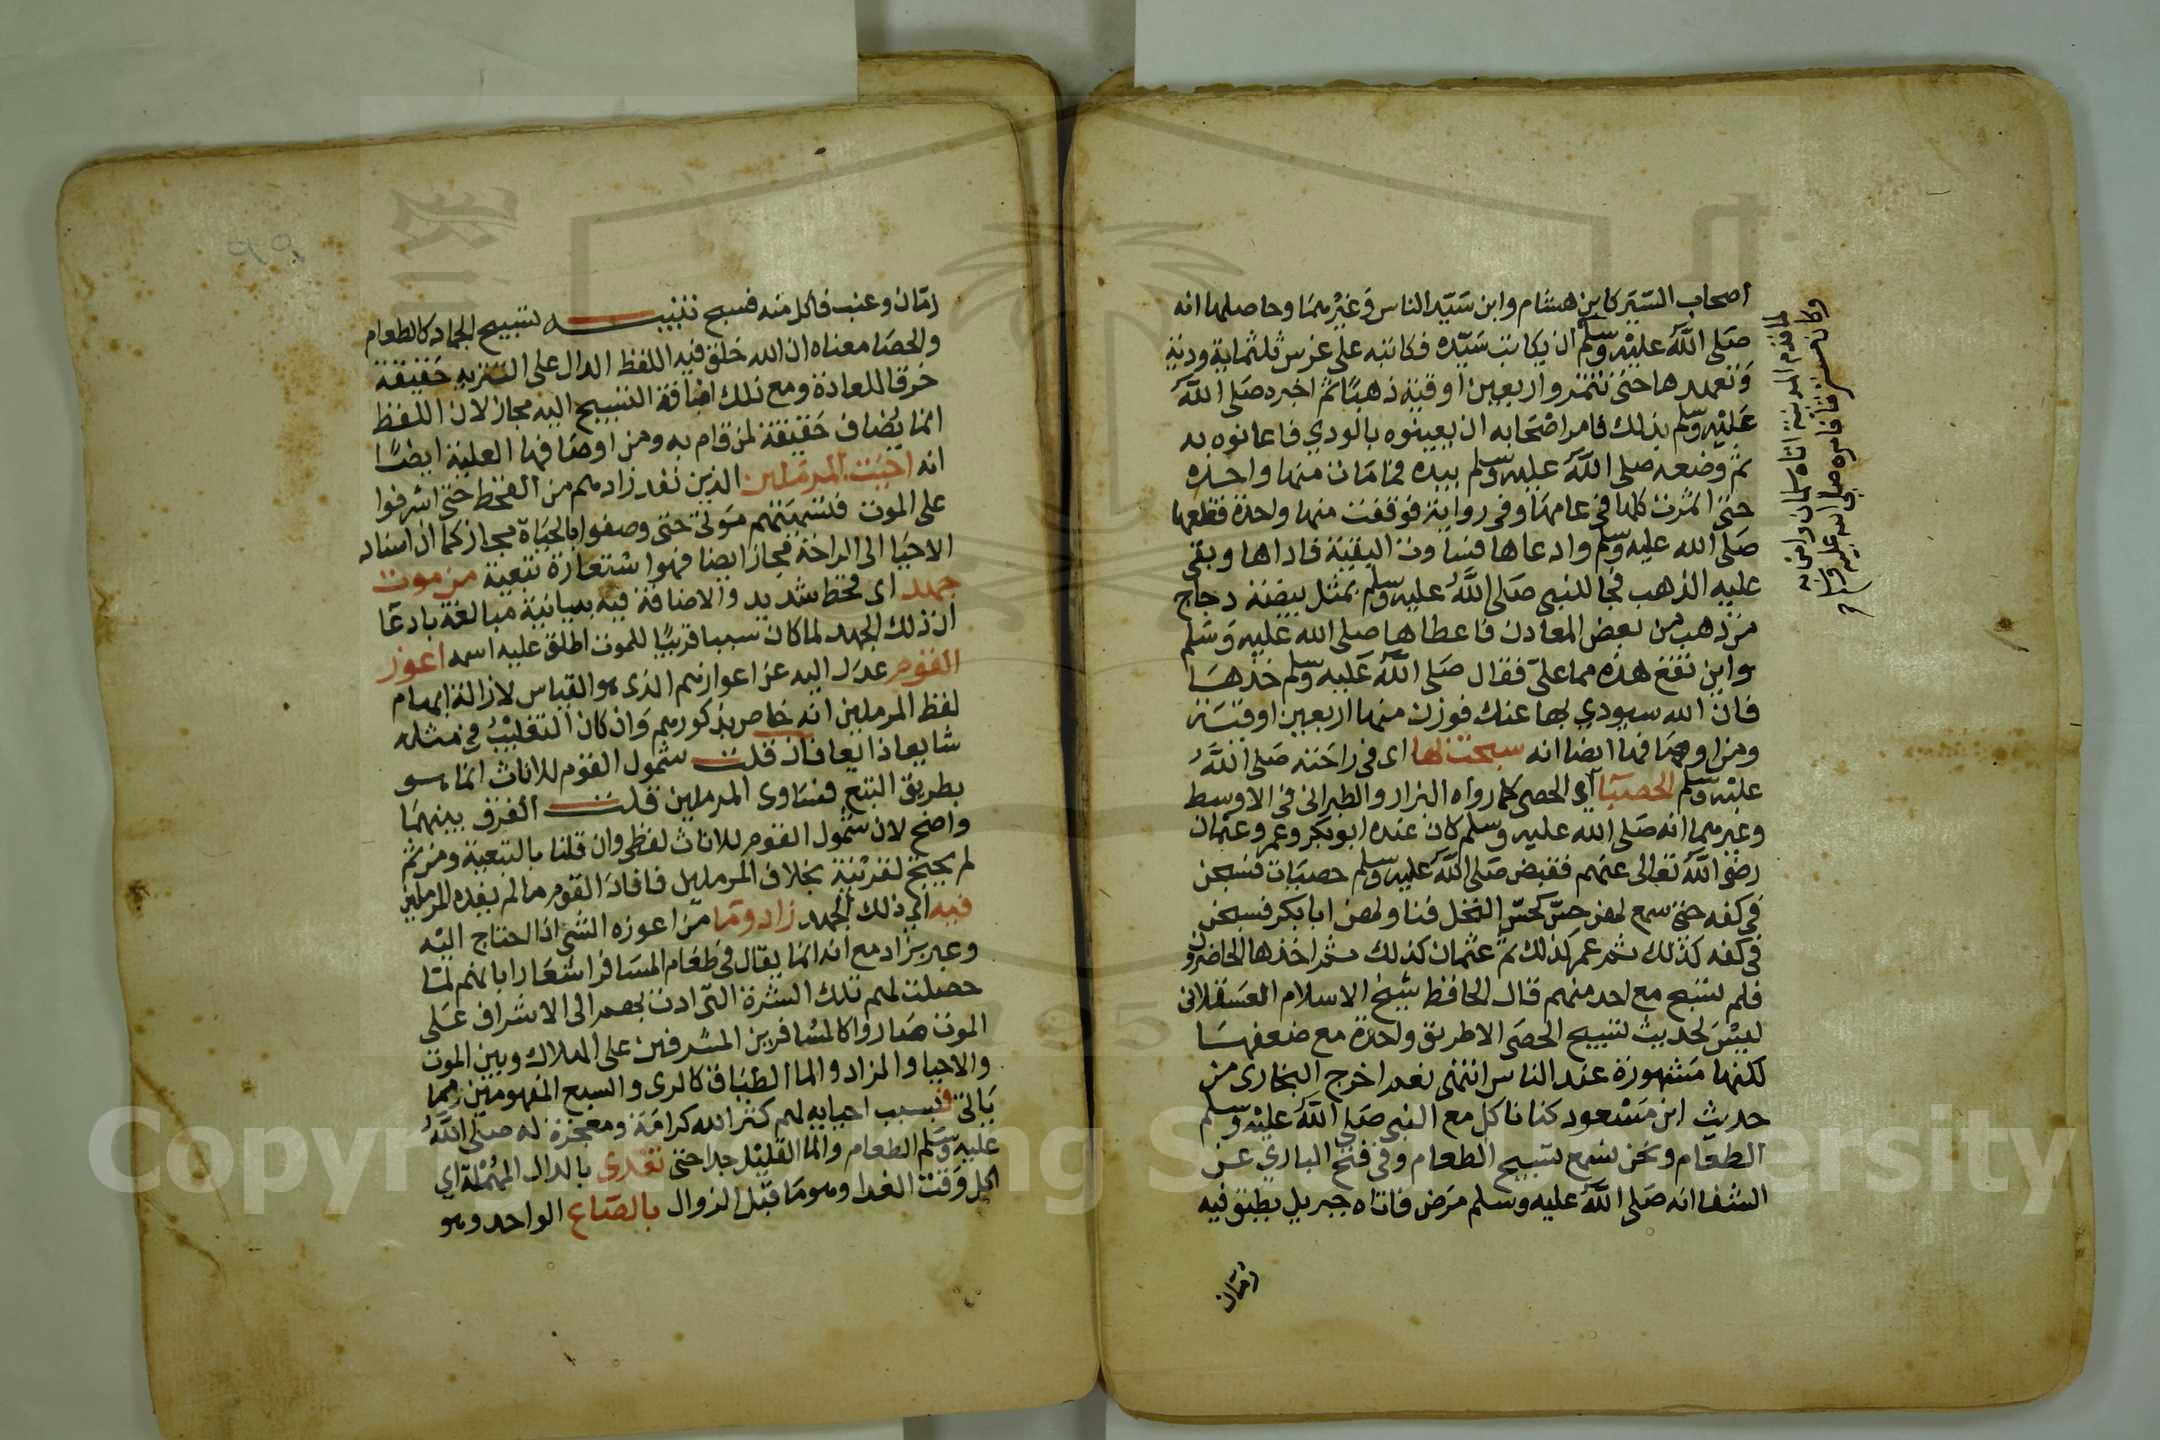 اصحاب السير كابن هشام وابن سيد الناس وغيرهما وحاصلها انه
صلى الله عليه وسلم ان يكاتب سيده فكاتبه على غرس ثلثماية ودية
وتعهدها حتى تثمر واربعين اوقية ذهبا ثم اخبره صلى الله
عليه وسلم بذلك فامر اصحابه ان يعينوه بالودي فاعانوه به
ثم وضعه صلى الله عليه وسلم بيده فما مات منها واحدة
حتى اثمرت كلها في عامها وفي رواية فوقفت منها واحدة فقلعها
صلى الله عليه وسلم وادعاها فساوت البقية فاداها وبقى
عليه الذهب فجا للنبى صلى الله عليه وسلم بمثل بيضة دجاج
من ذهب من بعض المعادن فاعطاها صلى الله عليه وسلم
واين تقع هذه مما على فقال صلى الله عليه وسلم خذها
فان الله سيودي بها عنك فوزن منها اربعين اوقية
ومن اوصافها ايضا انه سبحت بها اى فى راحته صلى الله
عليه وسلم الحصبا اي الحصى كما رواه البزار والطبرانى فى الاوسط
وغيرهما انه صلى الله عليه وسلم كان عنده ابو بكر وعمر وعثمان
رضى الله تعالى عنهم فقبض صلى الله عليه وسلم حصيات فسبحن
في كفه حتى سمع لهن حس كحس النخل فناولهن ابا بكر فسبحن
في كفه كذلك ثم عمر كذلك ثم عثمان كذلك ثم اخذها الحاضرون
فلم تسبح مع احد منهم قال الحافظ شيخ الاسلام العسقلانى
ليس لحديث تسبيح الحصى الا طريق واحدة مع ضعفها
لكنها مشهورة عند الناس انتهى نعم اخرج البخارى من
حديث ابن مسعود كنا ناكل مع النبى صلى الله عليه وسلم
الطعام ونحن نسمع تسبيح الطعام وفى فتح الباري عن
الشفا انه صلى الله عليه وسلم مرض فاتاه جبريل بطبق فيه
رمان
لما قدم المدينة اتاه سلمان وامن به
وكان مسترقا فامره صلى الله عليه وسلم
رمان وعنب فاكل منه فسبح تنبيه تسبيح الجماد كالطعام
والحصا معناه ان الله خلق فيه اللفظ الدال على التنزيه حقيقة
خرقا للعادة ومع ذلك اضافة التسبيح اليه مجاز لان اللفظ
انما يضاف حقيقة لمن قام به ومن اوصافها العلية ايضا
انه احيت المرملين الذين نفد زادهم من القحط حتى اشرفوا
على الموت فتسميتهم موتى حتى وصفوا بالحياة مجاز كما ان اسناد
الاحيا الى الراحة مجاز ايضا فهو استعارة تبعية من موت
جهد اى قحط شديد والاضافة فيه بيانية مبالغة بادعا
ان ذلك الجهد لما كان سببا قريبا للموت اطلق عليه اسمه اعوز
القوم عدل اليه عن اعوازهم الذى هو القياس لازالة ايهام
لفظ المرملين انه خاص بذكورهم وان كان التغليب في مثله
شايعا ذايعا فان قلت شمول القوم للاناث انما هو
بطريق التبع فساوى المرملين قلت الفرق بينهما
واضح لان شمول القوم للاناث لفظى وان قلنا بالتبعية ومن ثم
لم يحتج لقرينة بخلاف المرملين فافاد القوم ما لم يفده المرملين
فيه اي ذلك الجهد زاد وما من اعوزه الشى اذا احتاج اليه
وعبر بزاد مع انه انما يقال في طعام المسافر اشعارا بانهم لما
حصلت لهم تلك الشدة التى ادت بهم الى الاشراف على
الموت صاروا كالمسافرين المشرفين على الهلاك وبين الموت
والاحيا والزاد والما الطباق كالرى والشبع المفهومين مما
ياتى فبسبب احيايه لهم كثر الله كرامة ومعجزة له صلى الله
عليه وسلم الطعام والما القليل جدا حتى تغدى بالدال المهملة اي
اكل وقت الغدا وهو ما قبل الزوال بالصاع الواحد وهو
Copyright © King Saud University